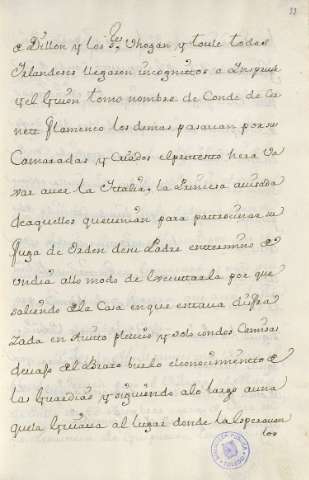 33
e Dillon y los Ses Vhogan y toule todos
Irlandeses llegaron incognittos a Inspruk
y el Guion tomo nombre de Conde de Ce
nett flamenco los demas pasauan por su
Camaradas y Criados el prettesto hera Va
xar a uer la Ittalia, la Princesa auisada
de aquellos que uenian para pattrocinar su
fuga de orden de su Padre entterminos
undia al lo modo de Executtarla por que
saliendo de la Casa en que esttaua disfra
zada en Auitto pleueo y solo con dos Camisas
deuajo el Brazo burlo el conocimientto de
las Guardias y siguiendo a lo largo auna
que la Guiaua al lugar donde la esperauan
los
BIBLIOTECA PUBLICA
TOLEDO